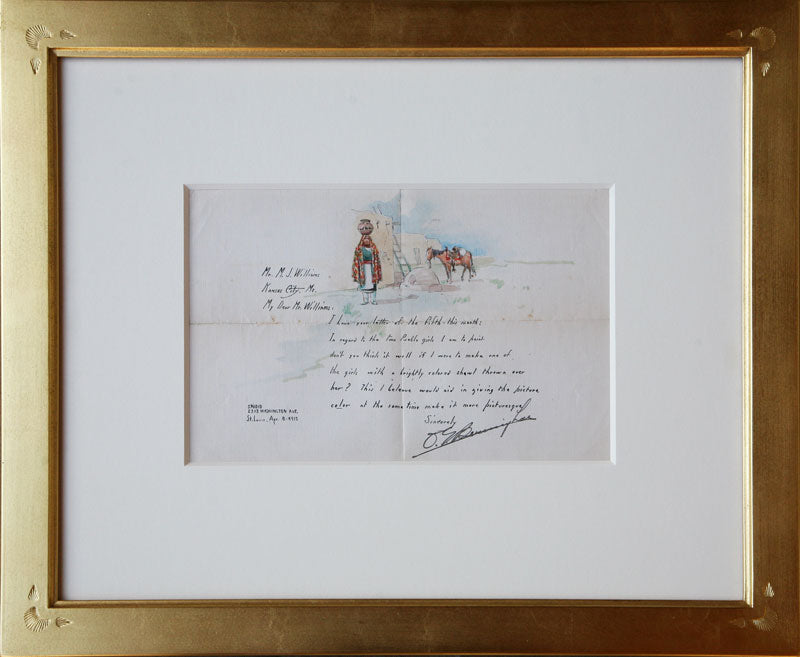 Mr. M. J. Williams
Kansas City. Mo.
My Dear Mr. Williams:
I have your letter of the fifth this month:
In regard to the Pueblo girls I am to paint
don't you think it well if I were to make one of
the girls with a brightly colored shawl thrown over
her? This I believe would aid in giving the picture
color at the same time make it more picturesque
Sincerely
O. E. Berninghaus
STUDIO
WASHINGTON AVE.
St. Louis, Apr. 8-1915